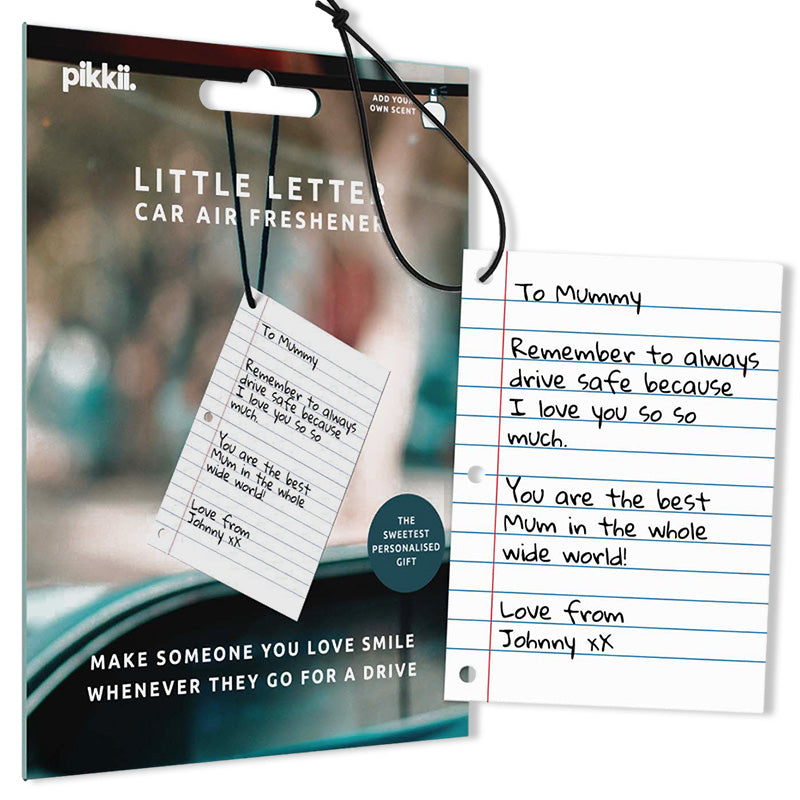 pikkii.
ADD YOUR
OWN SCENT
LITTLE LETTER
CAR AIR FRESHENER
To Mummy
Remember to always
drive safe because
I love you so so
much.
You are the best
Mum in the whole
wide world!
Love from
Johnny xX
THE
SWEETEST
PERSONALISED
GIFT
MAKE SOMEONE YOU LOVE SMILE
WHENEVER THEY GO FOR A DRIVE
To Mummy
Remember to always
drive safe because
I love you so so
much.
You are the best
Mum in the whole
wide world!
Love from
Johnny xX